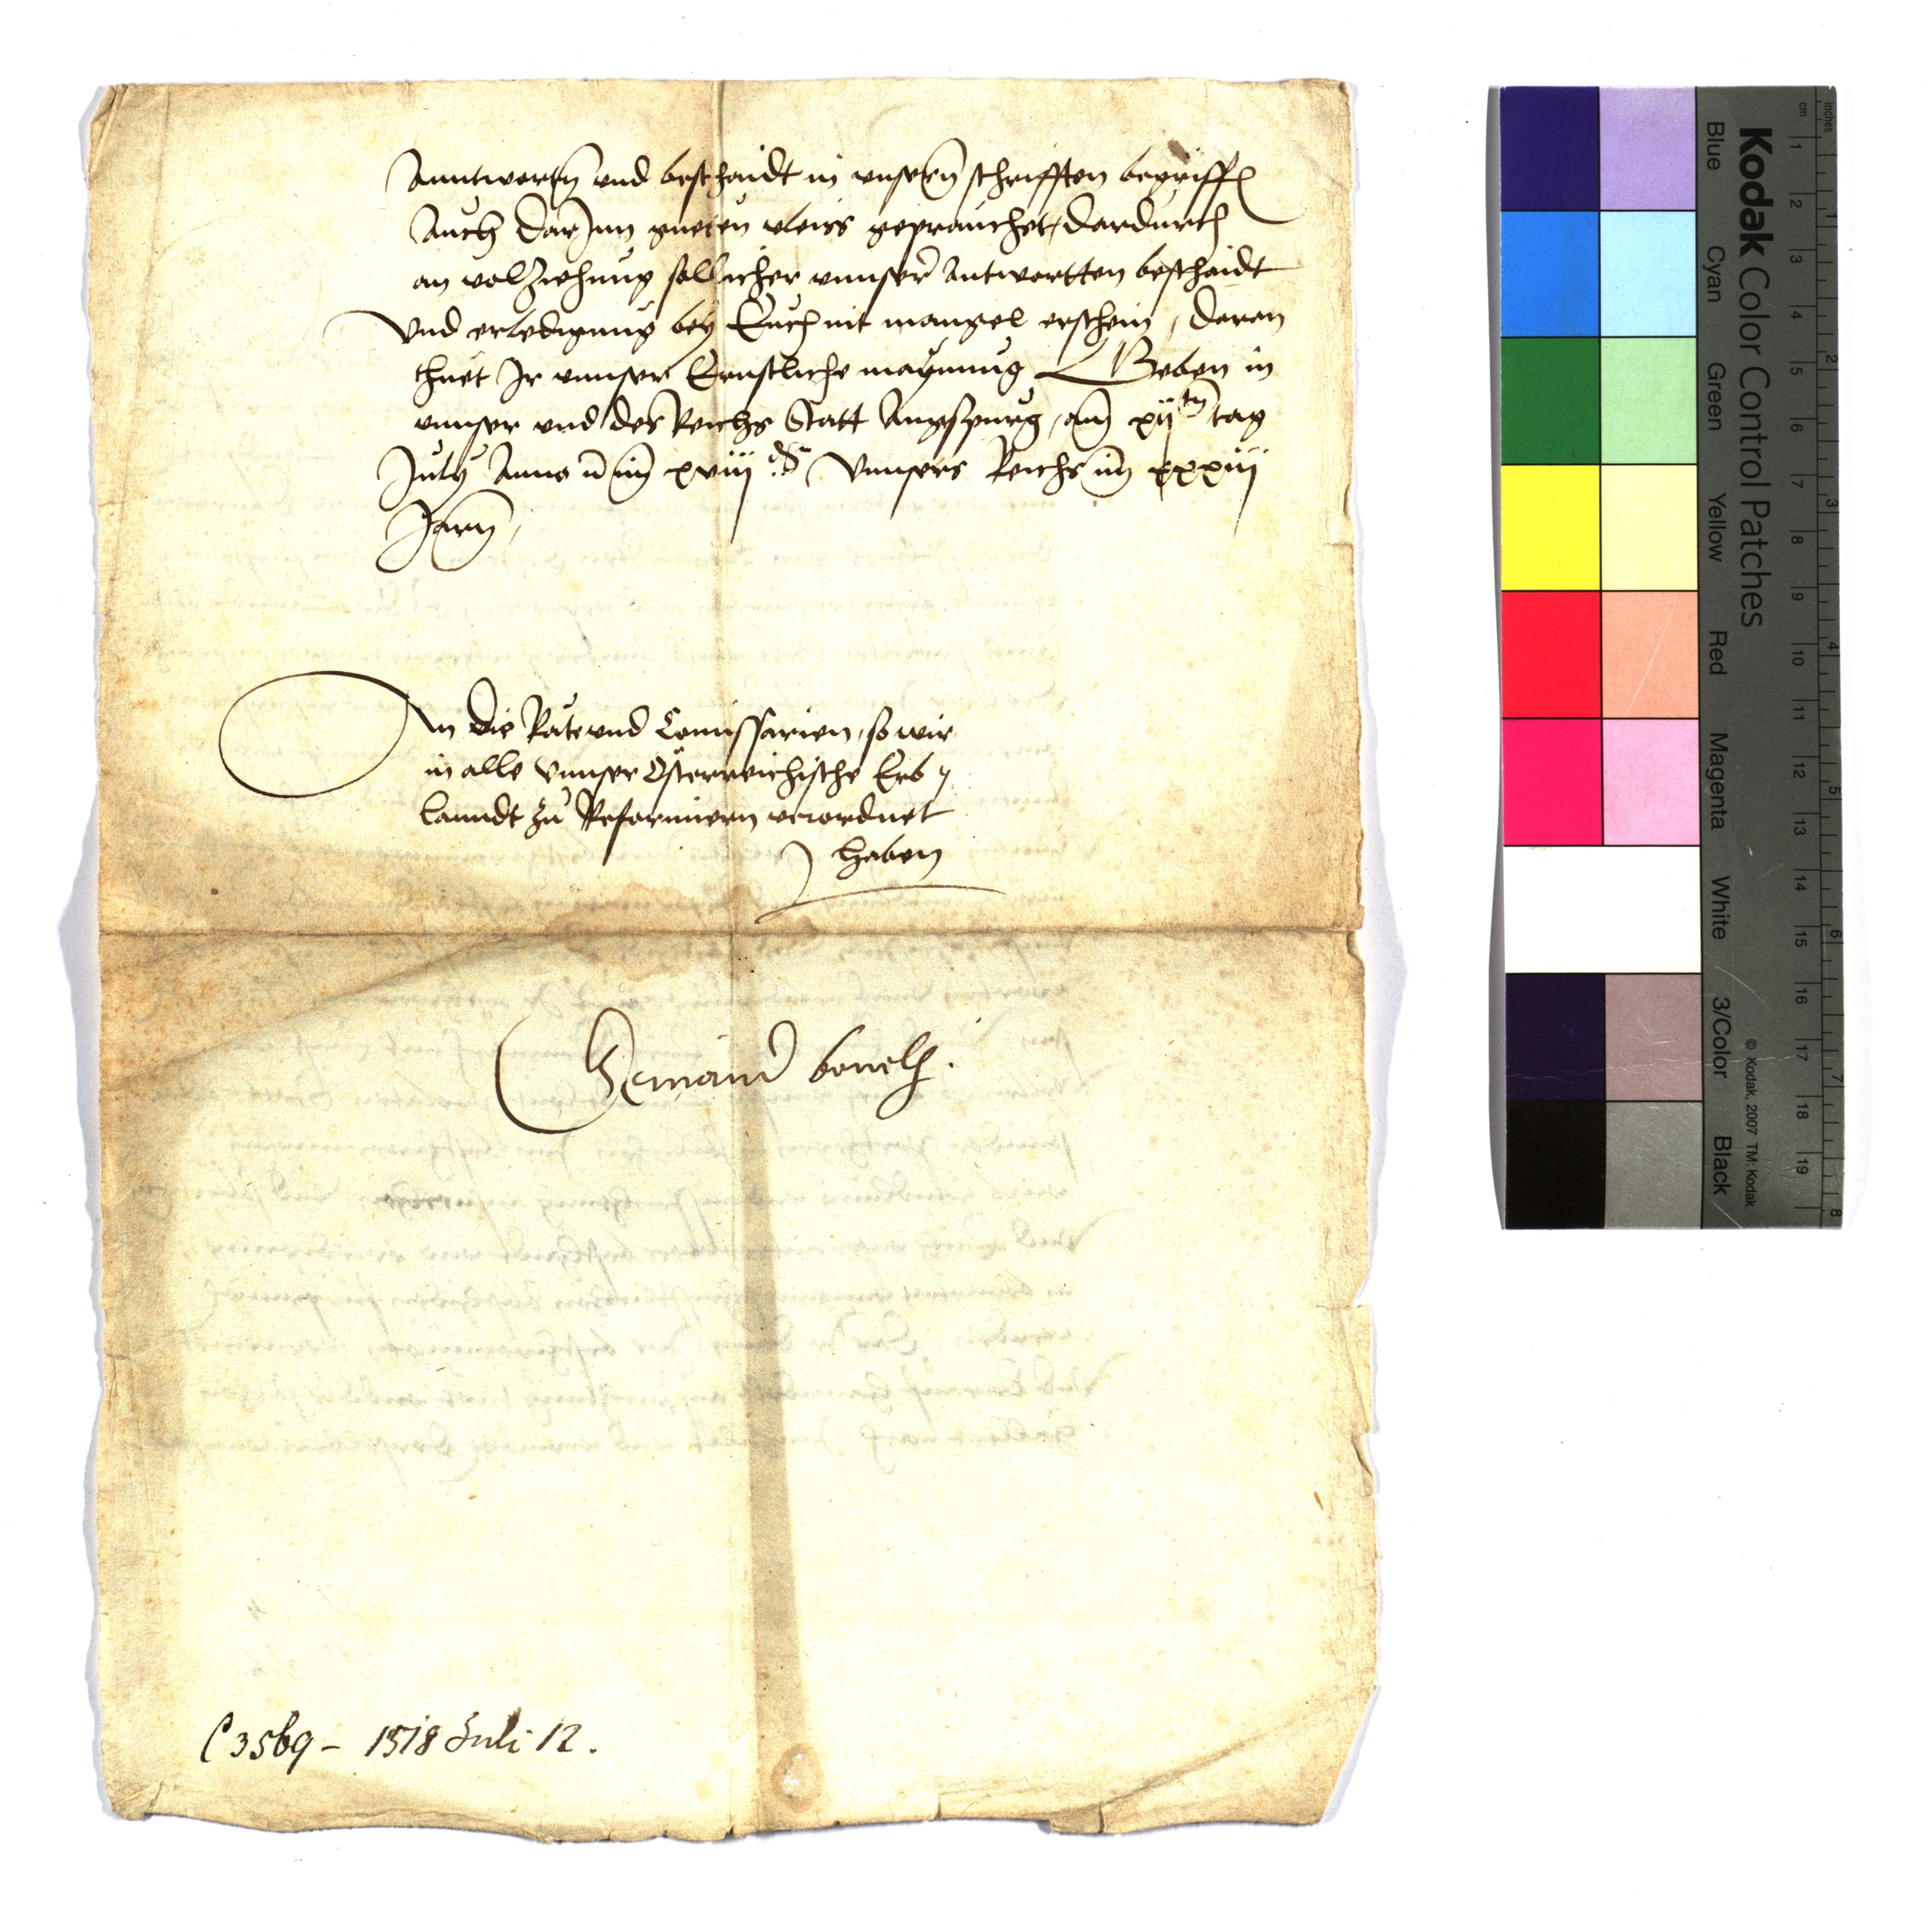 Anntwortn und beschaidt in unsern schrifften begriffen
Auch darInn gueten vleiss geprauchet, dardurch
an volziehung sollicher unnser Antwortten beschaidt
Vnd erledigung bey Euch nit mangel erschein, daran
thuet Ir unnser Ernstliche maynung Geben in
unnser und des Reichs Statt Augspurg, am xijtn tag
July Anno im xviij Vnnsers Reichs im xxxiij
Jarn,
An die Räte und Comissarien, so wir
in alle Vnnser Österreichische Erb
lanndt zu Reformiern verordnet
haben
C 3569 - 1518 Juli 12.
Kodak Color Control Patches
Blue Cyan Green Yellow Red Magenta White 3/Color Black
© Kodak, 2007 TM: Kodak
cm 1 2 3 4 5 6 7 8 9 10 11 12 13 14 15 16 17 18 19
inches 1 2 3 4 5 6 7 8